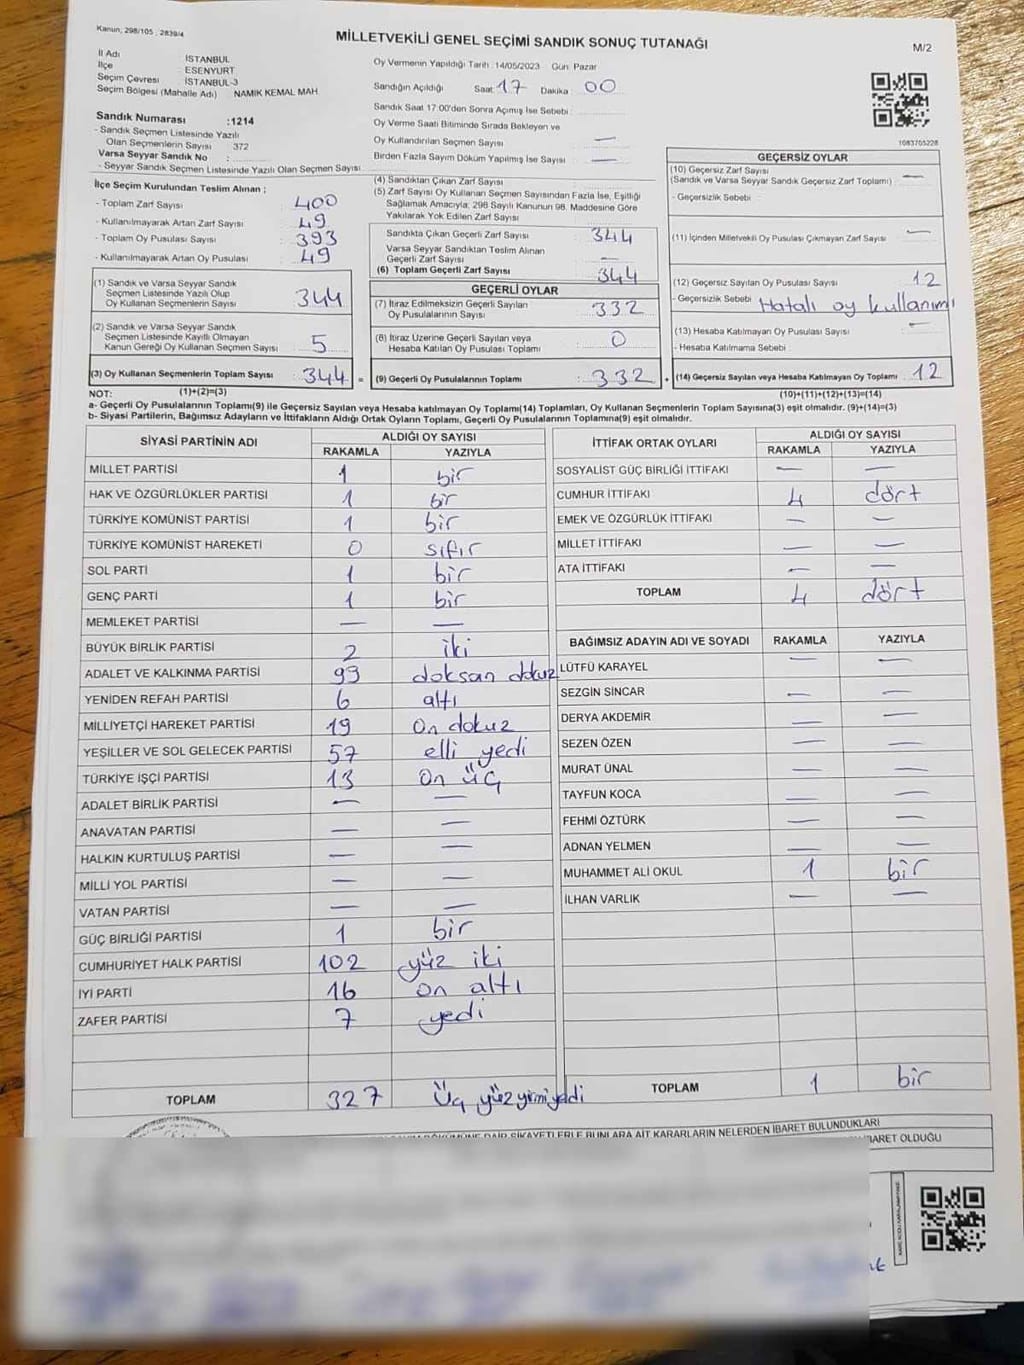 Kanun, 298/105 , 2839/4
MİLLETVEKİLİ GENEL SEÇİMİ SANDIK SONUÇ TUTANAĞI
M/2
İl Adı : İSTANBUL
İlçe : ESENYURT
Seçim Çevresi : İSTANBUL-3
Seçim Bölgesi (Mahalle Adı) : NAMIK KEMAL MAH
Sandık Numarası :1214
- Sandık Seçmen Listesinde Yazılı
Olan Seçmenlerin Sayısı 372
Varsa Seyyar Sandık No :
- Seyyar Sandık Seçmen Listesinde Yazılı Olan Seçmen Sayısı
Oy Vermenin Yapıldığı Tarih :14/05/2023 Gün: Pazar
Sandığın Açıldığı Saat: 17 Dakika : 00
Sandık Saat 17:00'den Sonra Açımış İse Sebebi :
Oy Verme Saati Bitiminde Sırada Bekleyen ve
Oy Kullandırılan Seçmen Sayısı —
Birden Fazla Sayım Döküm Yapılmış İse Sayısı —
1083705228
İlçe Seçim Kurulundan Teslim Alınan ;
- Toplam Zarf Sayısı : 400
- Kullanılmayarak Artan Zarf Sayısı : 49
- Toplam Oy Pusulası Sayısı : 393
- Kullanılmayarak Artan Oy Pusulası : 49
(1) Sandık ve Varsa Seyyar Sandık
Seçmen Listesinde Yazılı Olup
Oy Kullanan Seçmenlerin Sayısı : 344
(2) Sandık ve Varsa Seyyar Sandık
Seçmen Listesinde Kayıtlı Olmayan
Kanun Gereği Oy Kullanan Seçmen Sayısı : 5
(3) Oy Kullanan Seçmenlerin Toplam Sayısı : 344 =
(4) Sandıktan Çıkan Zarf Sayısı
(5) Zarf Sayısı Oy Kullanan Seçmen Sayısından Fazla İse, Eşitliği
Sağlamak Amacıyla; 298 Sayılı Kanunun 98. Maddesine Göre
Yakılarak Yok Edilen Zarf Sayısı
Sandıkta Çıkan Geçerli Zarf Sayısı 344
Varsa Seyyar Sandıktan Teslim Alınan
Geçerli Zarf Sayısı —
(6) Toplam Geçerli Zarf Sayısı 344
GEÇERLİ OYLAR
(7) İtiraz Edilmeksizin Geçerli Sayılan
Oy Pusulalarının Sayısı : 332
(8) İtiraz Üzerine Geçerli Sayılan veya
Hesaba Katılan Oy Pusulası Toplamı : 0
(9) Geçerli Oy Pusulalarının Toplamı : 332 +
GEÇERSİZ OYLAR
(10) Geçersiz Zarf Sayısı —
(Sandık ve Varsa Seyyar Sandık Geçersiz Zarf Toplamı)
- Geçersizlik Sebebi :
(11) İçinden Milletvekili Oy Pusulası Çıkmayan Zarf Sayısı —
(12) Geçersiz Sayılan Oy Pusulası Sayısı 12
- Geçersizlik Sebebi : Hatalı oy kullanımı
(13) Hesaba Katılmayan Oy Pusulası Sayısı : —
- Hesaba Katılmama Sebebi :
(14) Geçersiz Sayılan veya Hesaba Katılmayan Oy Toplamı : 12
NOT: (1)+(2)=(3)
(10)+(11)+(12)+(13)=(14)
a- Geçerli Oy Pusulalarının Toplamı(9) ile Geçersiz Sayılan veya Hesaba katılmayan Oy Toplamı(14) Toplamları, Oy Kullanan Seçmenlerin Toplam Sayısına(3) eşit olmalıdır. (9)+(14)=(3)
b- Siyasi Partilerin, Bağımsız Adayların ve İttifakların Aldığı Ortak Oyların Toplamı, Geçerli Oy Pusulalarının Toplamına(9) eşit olmalıdır.
SİYASİ PARTİNİN ADI ALDIĞI OY SAYISI
RAKAMLA YAZIYLA
MİLLET PARTİSİ 1 bir
HAK VE ÖZGÜRLÜKLER PARTİSİ 1 bir
TÜRKİYE KOMÜNİST PARTİSİ 1 bir
TÜRKİYE KOMÜNİST HAREKETİ 0 sıfır
SOL PARTİ 1 bir
GENÇ PARTİ 1 bir
MEMLEKET PARTİSİ — —
BÜYÜK BİRLİK PARTİSİ 2 iki
ADALET VE KALKINMA PARTİSİ 99 doksan dokuz
YENİDEN REFAH PARTİSİ 6 altı
MİLLİYETÇİ HAREKET PARTİSİ 19 on dokuz
YEŞİLLER VE SOL GELECEK PARTİSİ 57 elli yedi
TÜRKİYE İŞÇİ PARTİSİ 13 on üç
ADALET BİRLİK PARTİSİ — —
ANAVATAN PARTİSİ — —
HALKIN KURTULUŞ PARTİSİ — —
MİLLİ YOL PARTİSİ — —
VATAN PARTİSİ — —
GÜÇ BİRLİĞİ PARTİSİ 1 bir
CUMHURİYET HALK PARTİSİ 102 yüz iki
İYİ PARTİ 16 on altı
ZAFER PARTİSİ 7 yedi
TOPLAM 327 Üç yüz yirmi yedi
İTTİFAK ORTAK OYLARI ALDIĞI OY SAYISI
RAKAMLA YAZIYLA
SOSYALİST GÜÇ BİRLİĞİ İTTİFAKI — —
CUMHUR İTTİFAKI 4 dört
EMEK VE ÖZGÜRLÜK İTTİFAKI — —
MİLLET İTTİFAKI — —
ATA İTTİFAKI — —
TOPLAM 4 dört
BAĞIMSIZ ADAYIN ADI VE SOYADI RAKAMLA YAZIYLA
LÜTFÜ KARAYEL — —
SEZGİN SİNCAR — —
DERYA AKDEMİR — —
SEZEN ÖZEN — —
MURAT ÜNAL — —
TAYFUN KOCA — —
FEHMİ ÖZTÜRK — —
ADNAN YELMEN — —
MUHAMMET ALİ OKUL 1 bir
İLHAN VARLIK — —
TOPLAM 1 bir
DÖKÜMÜNE DAİR ŞİKAYETLERLE BUNLARA AİT KARARLARIN NELERDEN İBARET BULUNDUKLARI
İBARET OLDUĞU